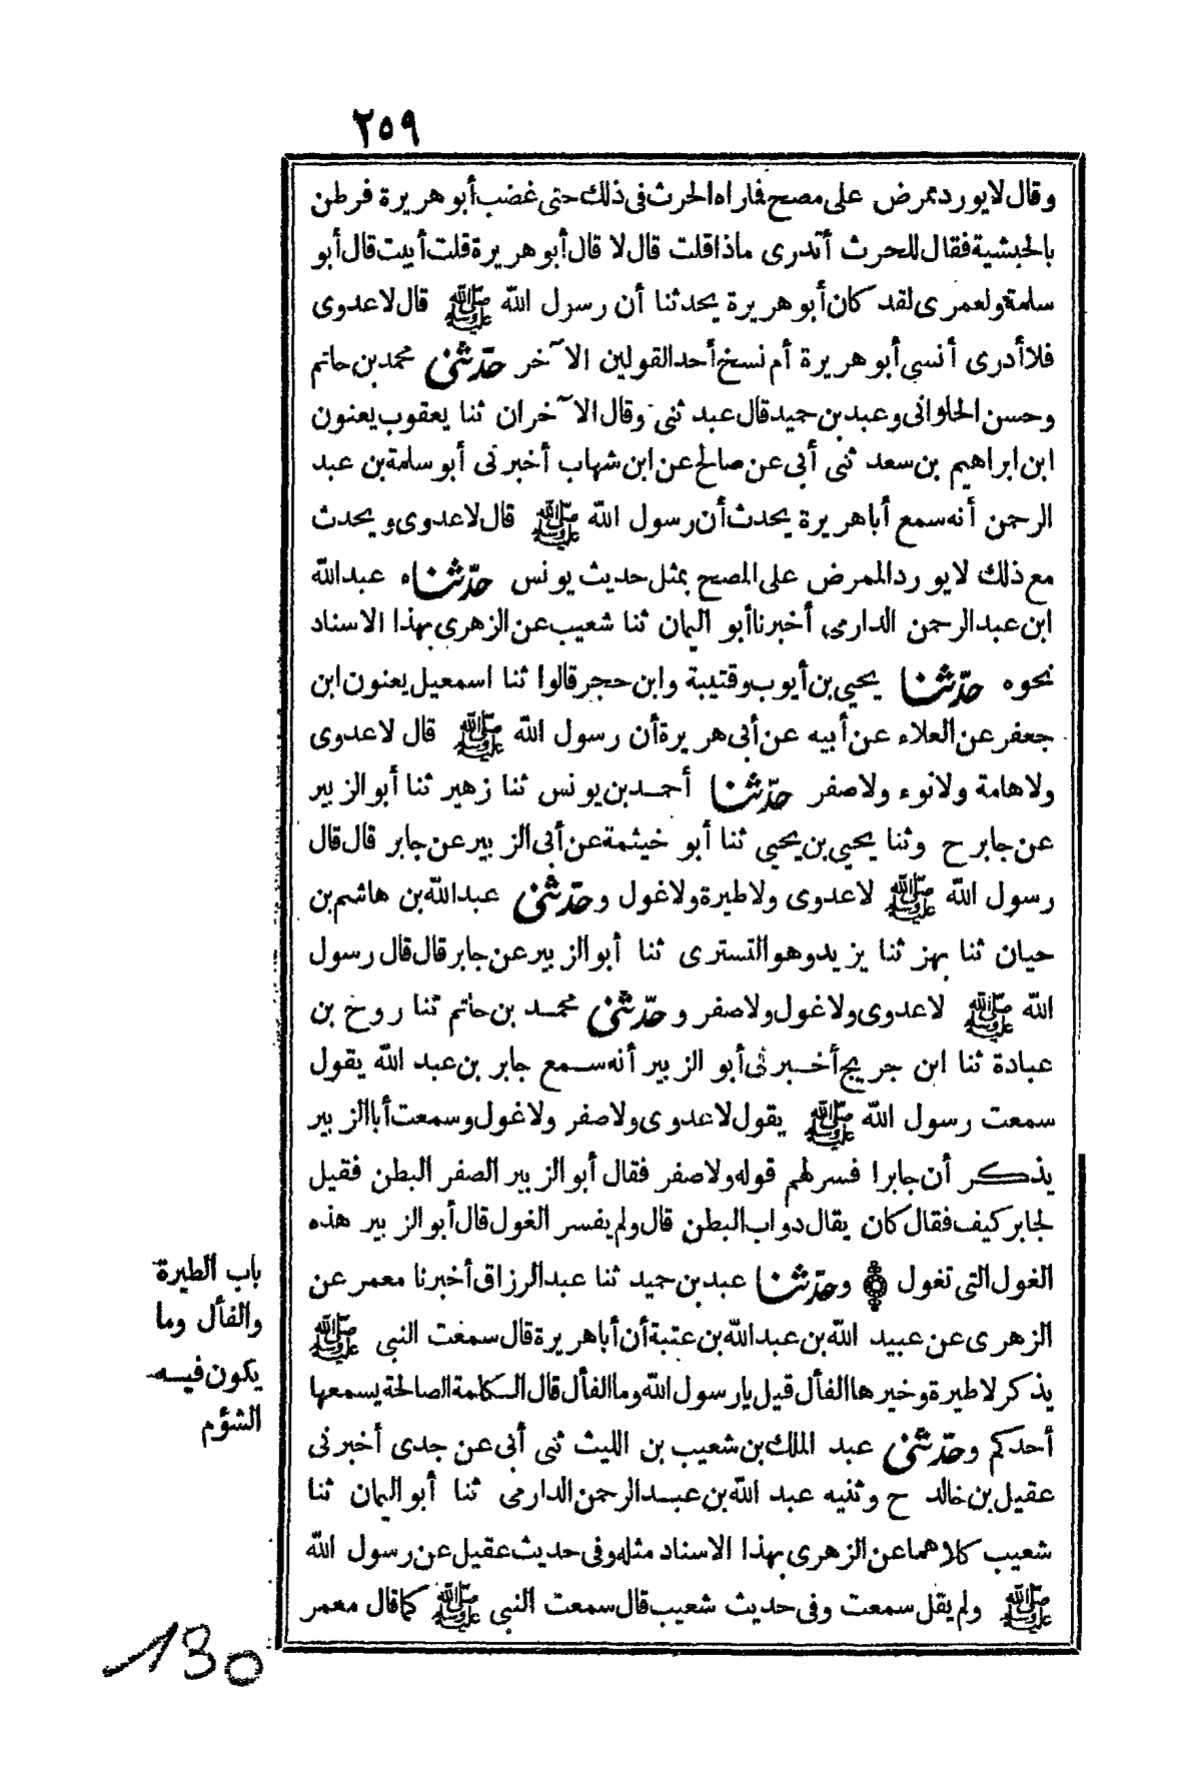 ٢٥٩
وقال لا يورد ممرض على مصح فما راه الحرث فى ذلك حتى غضب أبو هريرة فرطن
بالحبشية فقال للحرث أتدرى ماذا قلت قال لا قال أبو هريرة قلت أبيت قال أبو
سلمة ولعمرى لقد كان أبو هريرة يحدثنا أن رسول الله ﷺ قال لا عدوى
فلا أدرى أنسى أبو هريرة أم نسخ أحد القولين الآخر حدّثنى محمد بن حاتم
وحسن الحلوانى وعبد بن حميد قال عبد ثنى وقال الآخران ثنا يعقوب يعنون
ابن ابراهيم بن سعد ثنى أبى عن صالح عن ابن شهاب أخبرنى أبو سلمة بن عبد
الرحمن أنه سمع أبا هريرة يحدث أن رسول الله ﷺ قال لا عدوى ويحدث
مع ذلك لا يورد الممرض على المصح بمثل حديث يونس حدّثناه عبد الله
ابن عبد الرحمن الدارمى أخبرنا أبو اليمان ثنا شعيب عن الزهرى بهذا الاسناد
نحوه حدّثنا يحيى بن أيوب وقتيبة وابن حجر قالوا ثنا اسمعيل يعنون ابن
جعفر عن العلاء عن أبيه عن أبى هريرة أن رسول الله ﷺ قال لا عدوى
ولا هامة ولا نوء ولا صفر حدّثنا أحمد بن يونس ثنا زهير ثنا أبو الزبير
عن جابر ح وثنا يحيى بن يحيى ثنا أبو خيثمة عن أبى الزبير عن جابر قال قال
رسول الله ﷺ لا عدوى ولا طيرة ولا غول وحدّثنى عبد الله بن هاشم بن
حيان ثنا بهز ثنا يزيد وهو التسترى ثنا أبو الزبير عن جابر قال قال رسول
الله ﷺ لا عدوى ولا غول ولا صفر وحدّثنى محمد بن حاتم ثنا روح بن
عبادة ثنا ابن جريج أخبرنى أبو الزبير أنه سمع جابر بن عبد الله يقول
سمعت رسول الله ﷺ يقول لا عدوى ولا صفر ولا غول وسمعت أبا الزبير
يذكر أن جابرا فسر لهم قوله ولا صفر فقال أبو الزبير الصفر البطن فقيل
لجابر كيف فقال كان يقال دواب البطن قال ولم يفسر الغول قال أبو الزبير هذه
الغول التى تغول ۞ وحدّثنا عبد بن حميد ثنا عبد الرزاق أخبرنا معمر عن
الزهرى عن عبيد الله بن عبد الله بن عتبة أن أبا هريرة قال سمعت النبى ﷺ
يذكر لا طيرة وخيرها الفأل قيل يا رسول الله وما الفأل قال الكلمة الصالحة يسمعها
أحدكم وحدّثنى عبد الملك بن شعيب بن الليث ثنى أبى عن جدى أخبرنى
عقيل بن خالد ح وثنيه عبد الله بن عبد الرحمن الدارمى ثنا أبو اليمان ثنا
شعيب كلاهما عن الزهرى بهذا الاسناد مثله وفى حديث عقيل عن رسول الله
ﷺ ولم يقل سمعت وفى حديث شعيب قال سمعت النبى ﷺ كما قال معمر
باب الطيرة
والفأل وما
يكون فيه
الشؤم
130